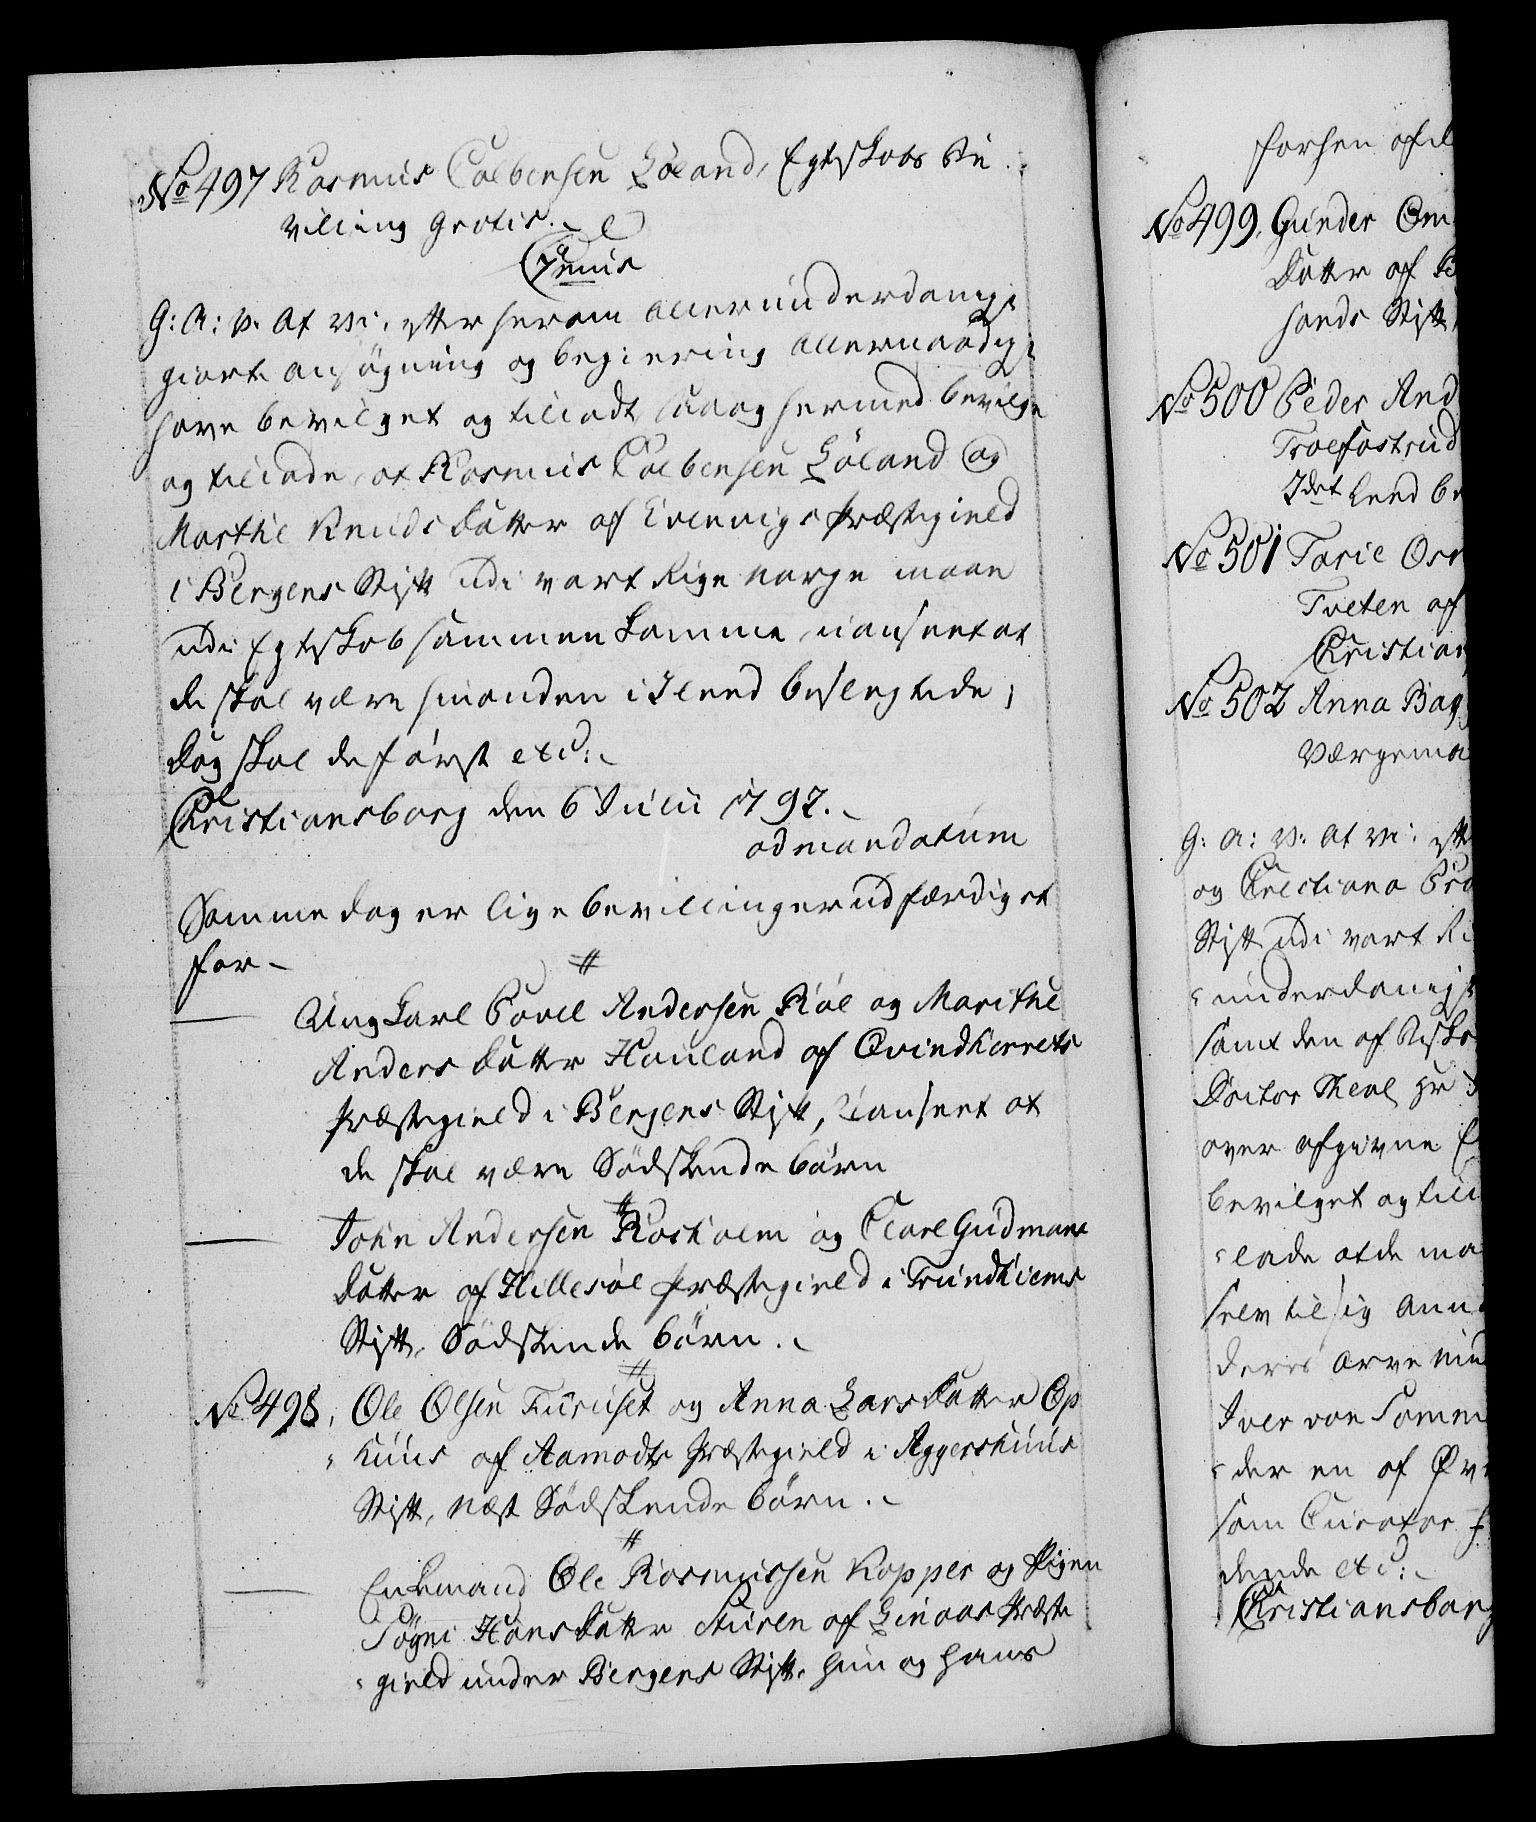 No 497 Rasmus Colbensen Løland, Egteskabs Be
villing Gratis.
G: A: V. At vi, efter herom allerunderdanigst
giorte ansøgning og begiering allernaadigst
have bevilget og tilladt, saa og hermed bevilge
og tillade, at Rasmus Colbensen Løland og
Marthe Knuds Datter af Evenvigs Præstegield
i Bergens Stift udi vort Rige Norge maae
udi Egteskab sammen komme, uanseet at
de skal være hinanden i 3 Leed beslegtede;
dog skal de først etc:
Christiansborg den 6 Julii 1797.
ad mandatum
Samme dag er lige bevillinger udfærdiget
for
Ung Karl Povel Andersen Røe og Marithe
Anders Datter Hauland af Qvindherrets
Præstegield i Bergens Stift, Uanseet at
de skal være Sødskende børn
John Andersen Rosholm og Clare Gudmans
Datter af Hillesøe Præstegield i Trundhiems
Stift, Sødskende børn.
No 498, Ole Olsen Furuset og Anna Lars Datter Op
huus af Aamodts Præstegield i Aggershuus
Stift, næst Sødskende børn.
Enkemand Ole Rasmussen Kopper og Pigen
Søgni Hans Datter Sturen af Linaas Præste
gield under Bergens Stift, hun og hans
forhen afd
No 499, Gunder Om
Datter af B
sands Stift
No 500 Peder And
Troelfostrud
3det Leed be
No 501 Tarie Osm
Tveten af
Christian
No 502 Anna Bag
Værgema
G: A: V: At vi, eft
og Christiana Pra
Stift udi vort Ri
underdanigst
samt den af Bisko
Doctor Theol Hr
over afgivne E
bevilget og till
lade at de ma
selv til sig ann
deres Arve Mid
Iver von Somm
der en af Øv
som Curator
dende etc:
Christiansborg